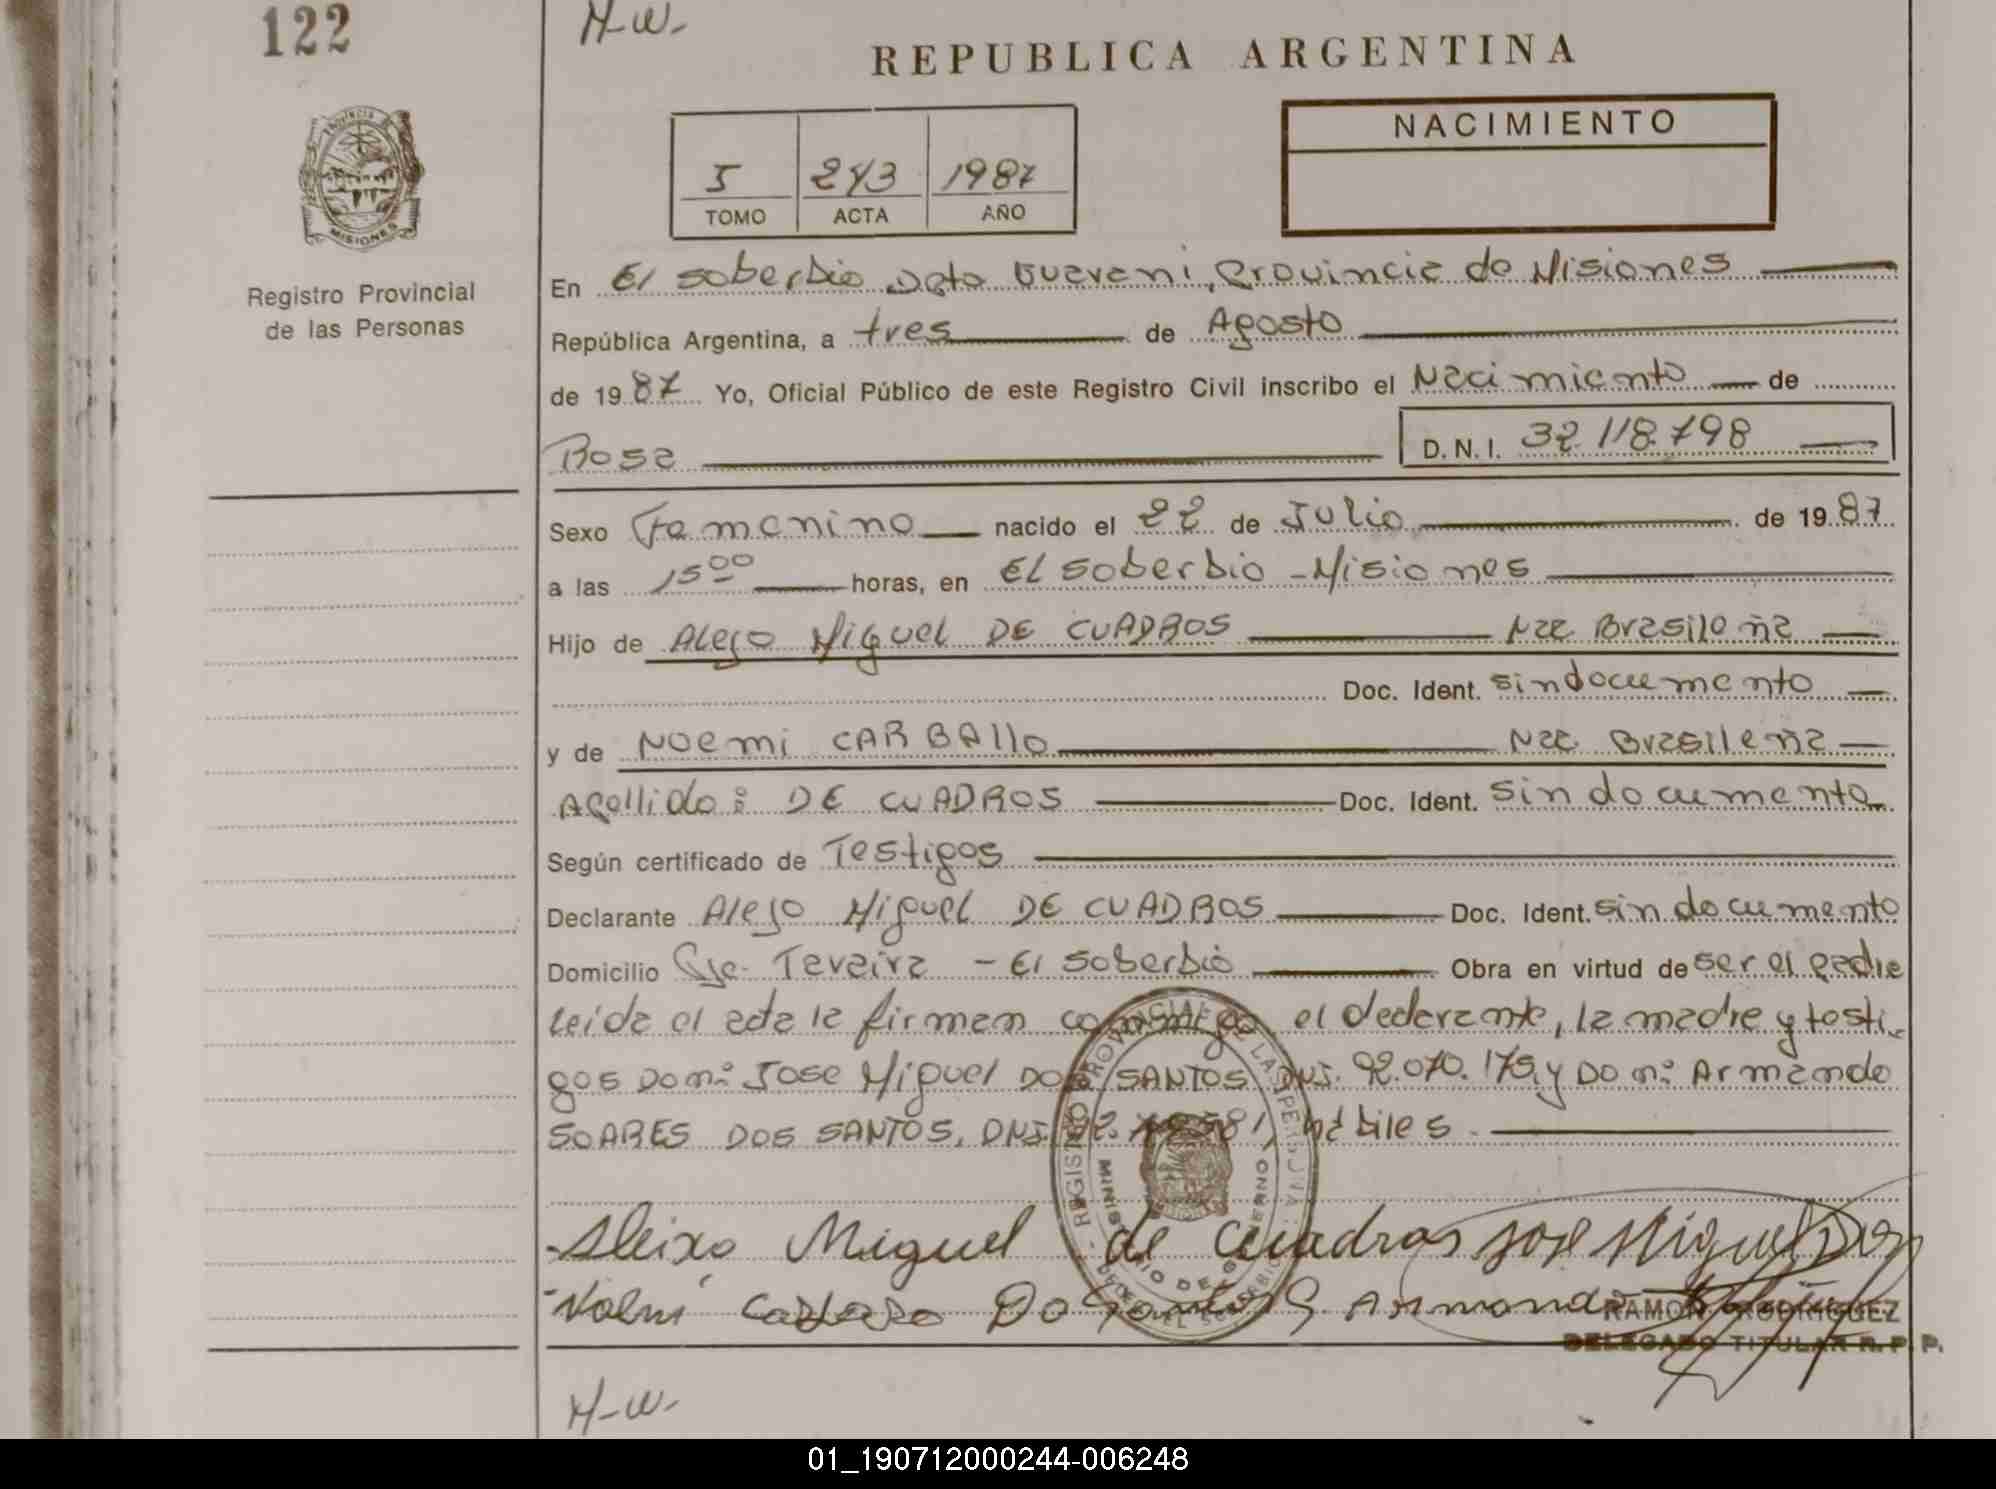 122
H-W-
REPUBLICA ARGENTINA
NACIMIENTO
I 243 1987
TOMO ACTA AÑO
MISIONES
Registro Provincial
de las Personas
En El Soberbio Dpto Guarani, Provincia de Misiones
República Argentina, a tres de Agosto
de 1987 Yo, Oficial Público de este Registro Civil inscribo el Nacimiento de
Rosa D.N.I. 32.118.798
Sexo Femenino nacido el 22 de Julio de 1987
a las 15 00 horas, en El Soberbio - Misiones
Hijo de Alejo Miguel DE CUADROS Nac Brasileña
Doc. Ident. sin documento
y de Noemi CARBAllo Nac Brasileña
Apellido: DE CUADROS Doc. Ident. sin documento
Según certificado de Testigos
Declarante Alejo Miguel DE CUADROS Doc. Ident. sin documento
Domicilio Pje. Teraira - El Soberbio Obra en virtud de ser el padre
leida el acta la firman conmigo el declarante, la madre y testi-
gos Don: Jose Miguel DOS SANTOS DNI. 92.070.175, y Don: Armando
SOARES DOS SANTOS, DNI. habiles.
REGISTRO PROVINCIAL DE LAS PERSONAS
MINISTERIO DE GOBIERNO
Aleixo Miguel de Cuadros Jose Miguel Dos
Armando
RAMON RODRIGUEZ
DELEGADO TITULAR R. P. P.
H-W-
01_190712000244-006248